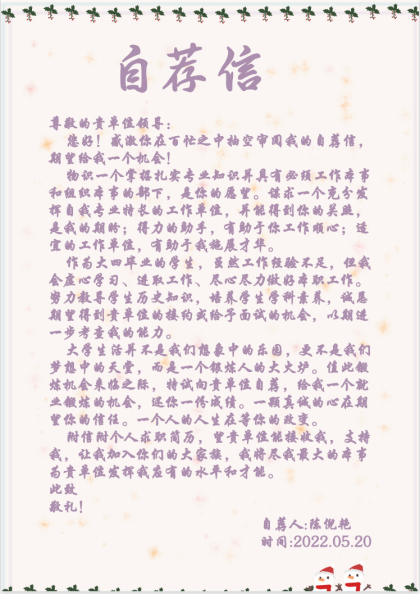 自荐信
尊敬的贵单位领导:
您好!感激你在百忙之中抽空审阅我的自荐信,
期望给我一个机会!
物识一个掌握扎实专业知识并具有必须工作本事
和组织本事的部下,是你的愿望。谋求一个充分发
挥自我专业特长的工作单位,并能得到你的关照,
是我的期盼;得力的助手,有助于你工作顺心;适
宜的工作单位,有助于我施展才华。
作为大四毕业的学生,虽然工作经验不足,但我
会虚心学习、进取工作、尽心尽力做好本职工作。
努力教导学生历史知识,培养学生学科素养,诚恳
期望得到贵单位的接约或给予面试的机会,以期进
一步考查我的能力。
大学生活并不是我们想象中的乐园,更不是我们
梦想中的天堂,而是一个锻炼人的大火炉。值此锻
炼机会来临之际,特试向贵单位自荐,给我一个就
业锻炼的机会,还你一份成绩。一颗真诚的心在期
望你的信任。一个人的人生在等你的改变。
附信附个人求职简历,望贵单位能接收我,支持
我,让我加入你们的大家族,我将尽我最大的本事
为贵单位发挥我应有的水平和才能。
此致
敬礼!
自荐人:陈倪艳
时间:2022.05.20